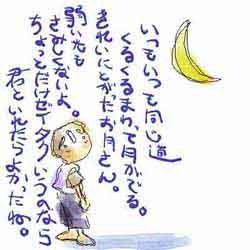 いつもいつも同じ道
くるくるまわって月がでる。
きれいにとがったお月さん。
弱い心も
さみしくないよ。
ちょっとだけゼイタクいうのなら
君といれたらよかったね。